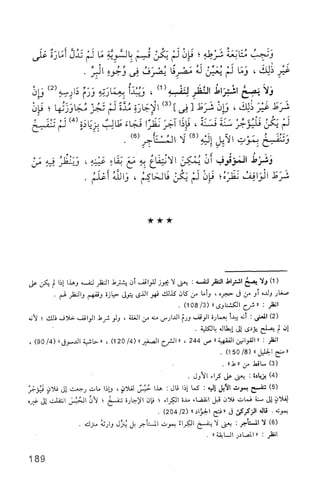 وَتَجِبُ مُتَابَعَةُ شَرْطِهِ ؛ فَإِنْ لَمْ يَكُنْ قُسِمَ بِالسَّوِيَّةِ مَا لَمْ تَدُلَّ أَمَارَةٌ عَلَى
غَيْرِ ذَلِكَ ، وَمَا لَمْ يُعَيَّنْ لَهُ مَصْرِفًا يُصْرَفُ فِي وُجُوهِ الْبِرِّ .
وَلاَ يَصِحُّ اشْتِرَاطُ النَّظَرِ لِنَفْسِهِ (1) ، وَيُبْدَأُ بِعِمَارَتِهِ وَرَمِّ دَارِسِهِ (2) وَإِنْ
شَرَطَ غَيْرَ ذَلِكَ ، وَإِنْ شَرَطَ [ فِي ] (3) الإِجَارَةِ مُدَّةً لَمْ تَجُزْ مُجَاوَزَتُهَا ؛ فَإِنْ
لَمْ يَكُنْ فَلْيُؤَجَّرْ سَنَةً فَسَنَةً ، فَإِذَا آجَرَ نَظَرًا فَجَاءَ طَالِبٌ بِزِيَادَةٍ (4) لَمْ تَنْفَسِخْ
وَتَنْفَسِخُ بِمَوْتِ الآيِلِ إِلَيْهِ (5) لاَ الْمُسْتَأْجِرِ (6) .
وَشَرْطُ الْمَوْقُوفِ أَنْ يُمْكِنَ الانْتِفَاعُ بِهِ مَعَ بَقَاءِ عَيْنِهِ ، وَيَنْظُرُ فِيهِ مَنْ
شَرَطَ الْوَاقِفُ نَظَرَهُ؛ فَإِنْ لَمْ يَكُنْ فَالْحَاكِمُ ، وَاللَّهُ أَعْلَمُ .
★★★
(1) ولا يصح اشتراط النظر لنفسه : يعني لا يجوز للواقف أن يشترط النظر لنفسه وهذا إذا لم يكن على
صغار ولده أو من في حجره ، وأما من كان كذلك فهو الذي يتولى حيازة وقفهم والنظر لهم .
انظر : « شرح الكشناوي » (108/3) .
(2) المعنى : أنه يبدأ بعمارة الوقف ورم الدارس منه من الغلة ، ولو شرط الواقف خلاف ذلك ؛ لأنه
إن لم يصلح يؤدي إلى إبطاله بالكلية .
انظر : « القوانين الفقهية » ص 244 ، « الشرح الصغير » (120/4) ، « حاشية الدسوقي» (90/4) ،
« منح الجليل » (150/8) .
(3) ساقط من « ط» .
(4) بزيادة : يعني على كراء الأول .
(5) تنفسخ بموت الآيل إليه : كما إذا قال : هذا حُبْسٌ لفلان ، وإذا مات رجعت إلى فلان فَيُؤَجَّرُ
لفلان إلى سنة فمات فلان قبل انقضاء مدة الكراء ، فإن الإجارة تنفسخ ؛ لأن الحُبْسَ انتقلت إلى غيره
بموته . قاله الزركزي في « فتح الجواد» (204/2) .
(6) لا المستأجر : يعني لا ينفسخ الكراء بموت المستأجر بل يُنْزَل وارثه منزلته .
انظر : « المصادر السابقة» .
189